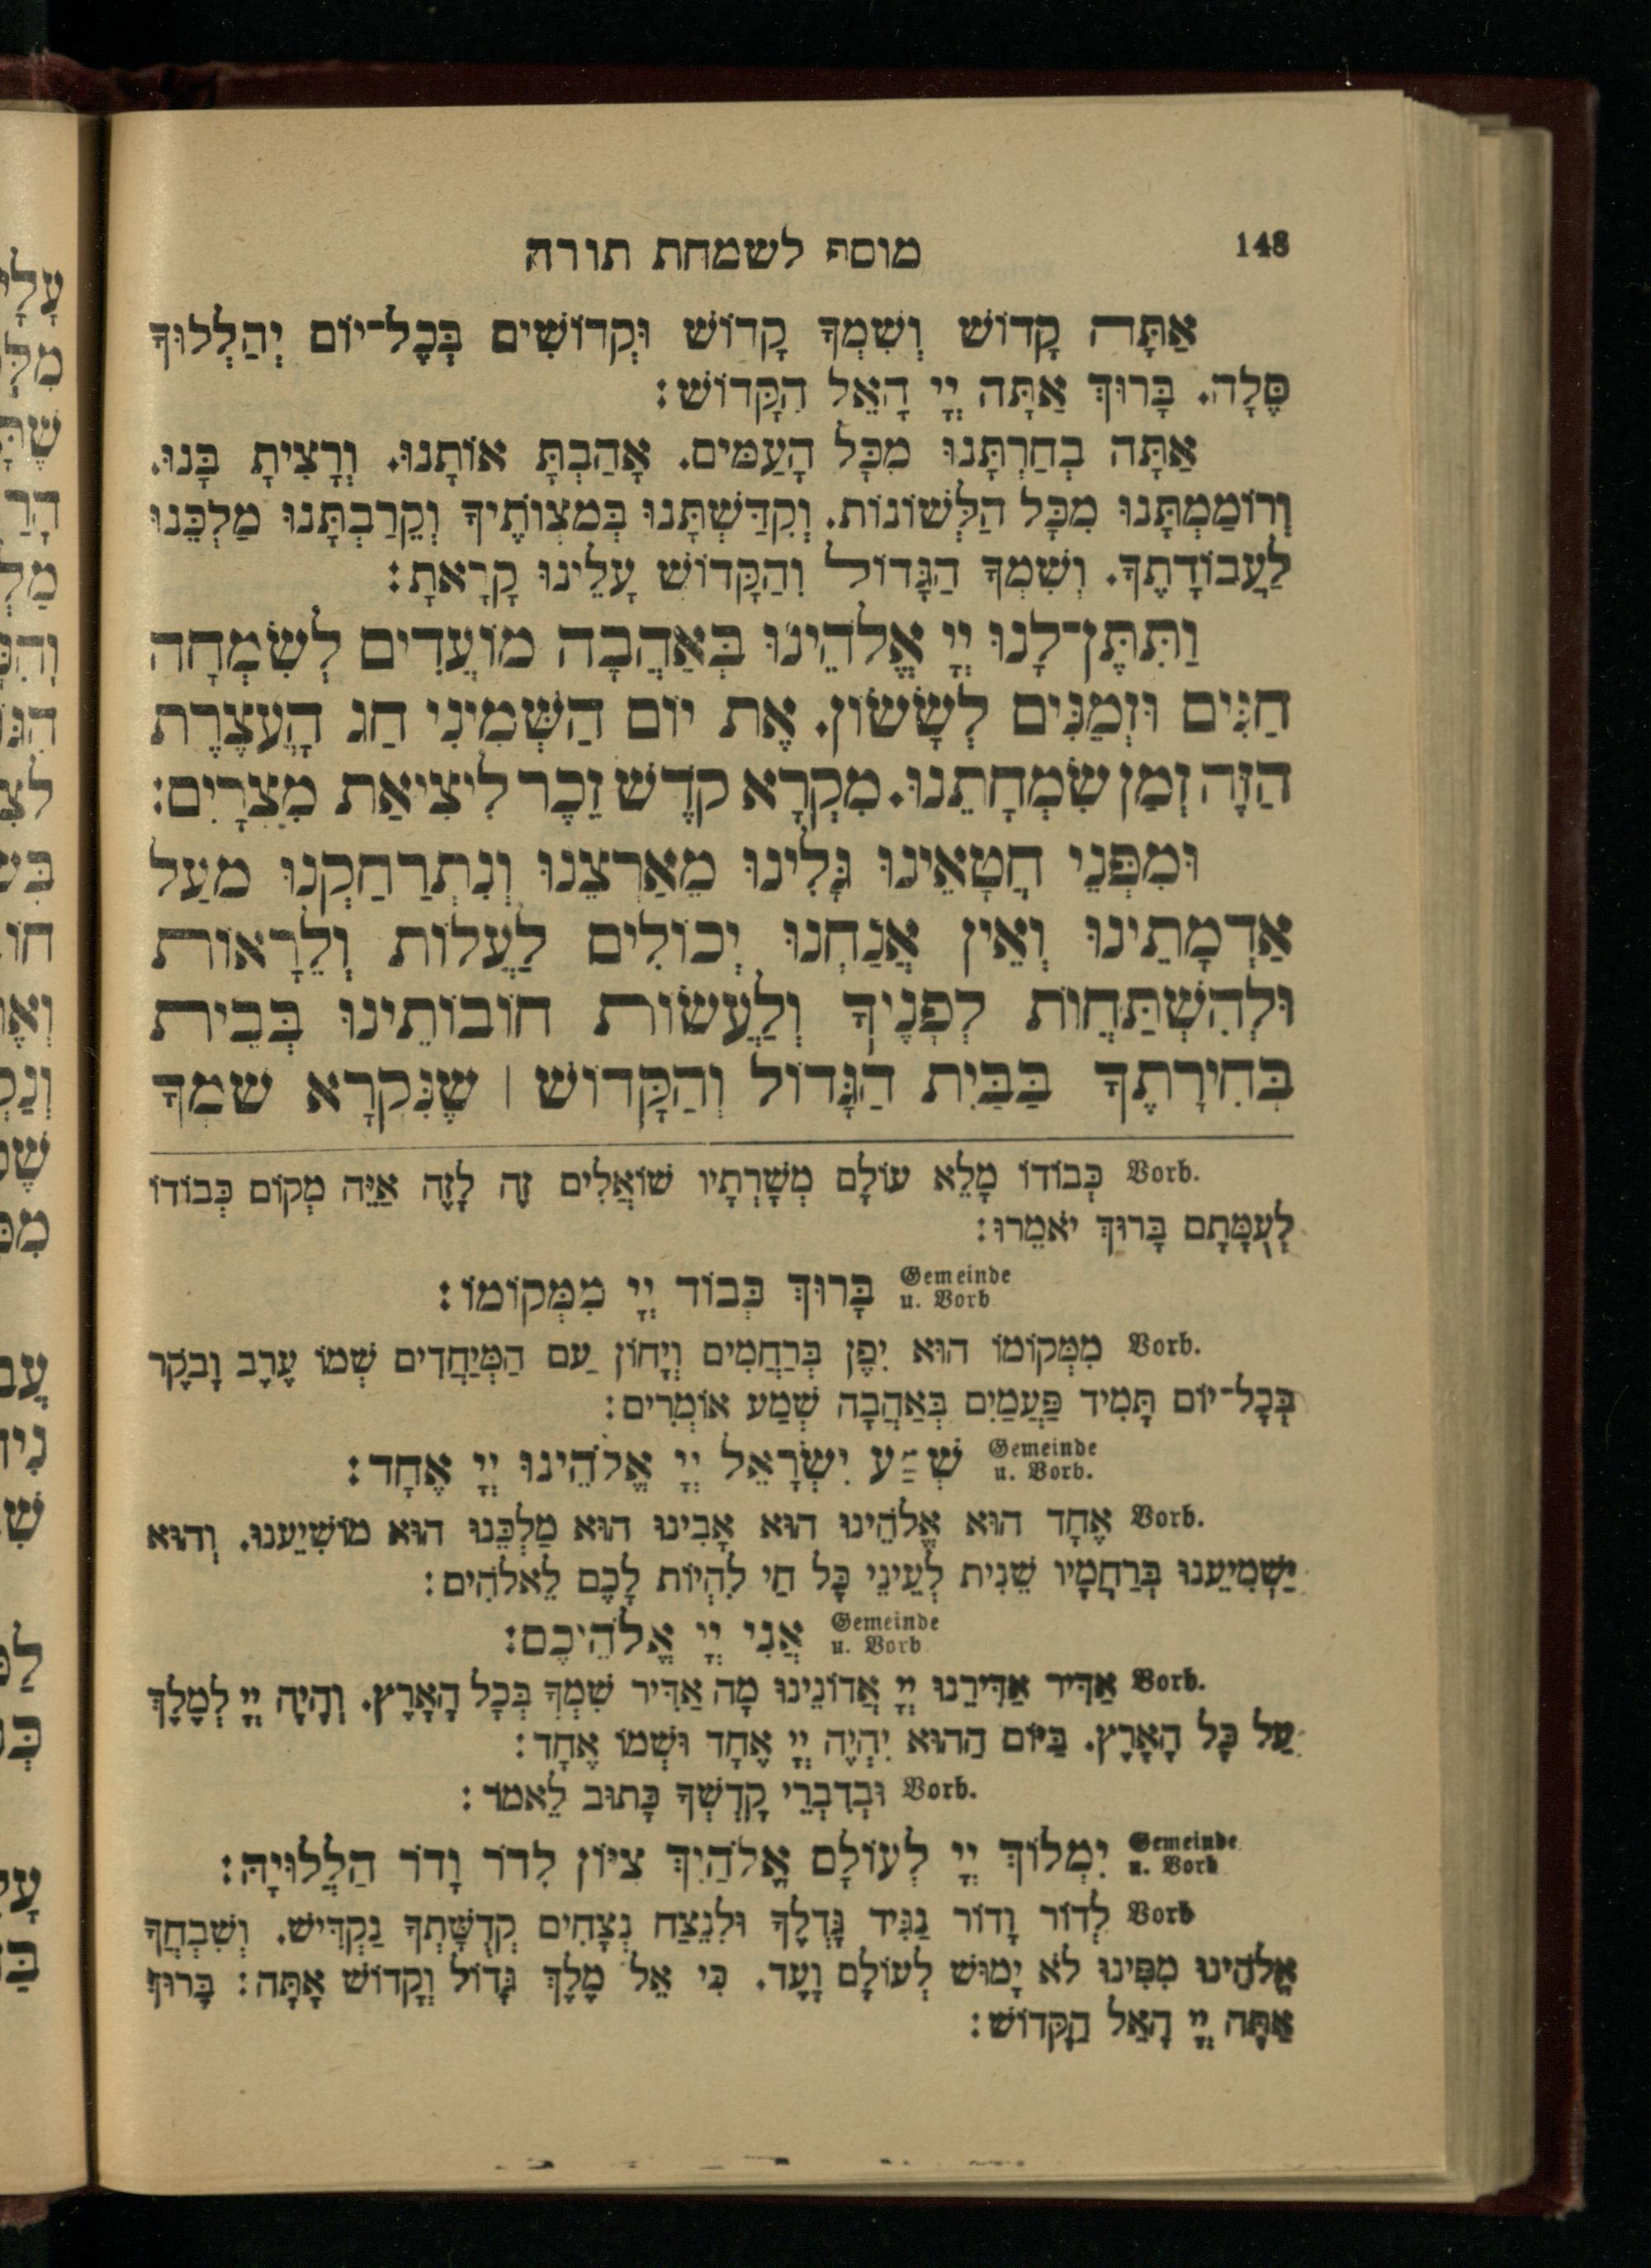 148 מוסף לשמחת תורה
אַתָּה קָדוֹשׁ וְשִׁמְךָ קָדוֹשׁ וּקְדוֹשִׁים בְּכָל־יוֹם יְהַלְלוּךָ
סֶּלָה. בָּרוּךְ אַתָּה יְיָ הָאֵל הַקָּדוֹשׁ:
אַתָּה בְחַרְתָּנוּ מִכָּל הָעַמִּים. אָהַבְתָּ אוֹתָנוּ. וְרָצִיתָ בָּנוּ.
וְרוֹמַמְתָּנוּ מִכָּל הַלְּשׁוֹנוֹת. וְקִדַּשְׁתָּנוּ בְּמִצְוֹתֶיךָ וְקֵרַבְתָּנוּ מַלְכֵּנוּ
לַעֲבוֹדָתֶךָ. וְשִׁמְךָ הַגָּדוֹל וְהַקָּדוֹשׁ עָלֵינוּ קָרָאתָ:
וַתִּתֶּן־לָנוּ יְיָ אֱלֹהֵינוּ בְּאַהֲבָה מוֹעֲדִים לְשִׂמְחָה
חַגִּים וּזְמַנִּים לְשָׂשׂוֹן. אֶת יוֹם הַשְּׁמִינִי חַג הָעֲצֶרֶת
הַזֶּה זְמַן שִׂמְחָתֵנוּ. מִקְרָא קֹדֶשׁ זֵכֶר לִיצִיאַת מִצְרָיִם:
וּמִפְּנֵי חֲטָאֵינוּ גָּלִינוּ מֵאַרְצֵנוּ וְנִתְרַחַקְנוּ מֵעַל
אַדְמָתֵינוּ וְאֵין אֲנַחְנוּ יְכוֹלִים לַעֲלוֹת וְלֵרָאוֹת
וּלְהִשְׁתַּחֲוֹת לְפָנֶיךָ וְלַעֲשׂוֹת חוֹבוֹתֵינוּ בְּבֵית
בְּחִירָתֶךָ בַּבַּיִת הַגָּדוֹל וְהַקָּדוֹשׁ | שֶׁנִּקְרָא שִׁמְךָ
Vorb. כְּבוֹדוֹ מָלֵא עוֹלָם מְשָׁרְתָיו שׁוֹאֲלִים זֶה לָזֶה אַיֵּה מְקוֹם כְּבוֹדוֹ
לְעֻמָּתָם בָּרוּךְ יֹאמֵרוּ:
Gemeinde u. Vorb בָּרוּךְ כְּבוֹד יְיָ מִמְּקוֹמוֹ:
Vorb. מִמְּקוֹמוֹ הוּא יִפֶן בְּרַחֲמִים וְיָחוֹן עַם הַמְיַחֲדִים שְׁמוֹ עֶרֶב וָבֹקֶר
בְּכָל־יוֹם תָּמִיד פַּעֲמַיִם בְּאַהֲבָה שְׁמַע אוֹמְרִים:
Gemeinde u. Vorb. שְׁמַע יִשְׂרָאֵל יְיָ אֱלֹהֵינוּ יְיָ אֶחָד:
Vorb. אֶחָד הוּא אֱלֹהֵינוּ הוּא אָבִינוּ הוּא מַלְכֵּנוּ הוּא מוֹשִׁיעֵנוּ. וְהוּא
יַשְׁמִיעֵנוּ בְּרַחֲמָיו שֵׁנִית לְעֵינֵי כָּל חַי לִהְיוֹת לָכֶם לֵאלֹהִים:
Gemeinde u. Vorb אֲנִי יְיָ אֱלֹהֵיכֶם:
Vorb. אַדִּיר אַדִּירֵנוּ יְיָ אֲדוֹנֵינוּ מָה אַדִּיר שִׁמְךָ בְּכָל הָאָרֶץ. וְהָיָה יְיָ לְמֶלֶךְ
עַל כָּל הָאָרֶץ. בַּיּוֹם הַהוּא יִהְיֶה יְיָ אֶחָד וּשְׁמוֹ אֶחָד:
Vorb. וּבְדִבְרֵי קָדְשְׁךָ כָּתוּב לֵאמֹר:
Gemeinde u. Vorb יִמְלוֹךְ יְיָ לְעוֹלָם אֱלֹהַיִךְ צִיּוֹן לְדֹר וָדֹר הַלֲלוּיָהּ:
Vorb לְדוֹר וָדוֹר נַגִּיד גָּדְלֶךָ וּלְנֵצַח נְצָחִים קְדֻשָּׁתְךָ נַקְדִּישׁ. וְשִׁבְחֲךָ
אֱלֹהֵינוּ מִפִּינוּ לֹא יָמוּשׁ לְעוֹלָם וָעֶד. כִּי אֵל מֶלֶךְ גָּדוֹל וְקָדוֹשׁ אָתָּה: בָּרוּךְ
אַתָּה יְיָ הָאֵל הַקָּדוֹשׁ: